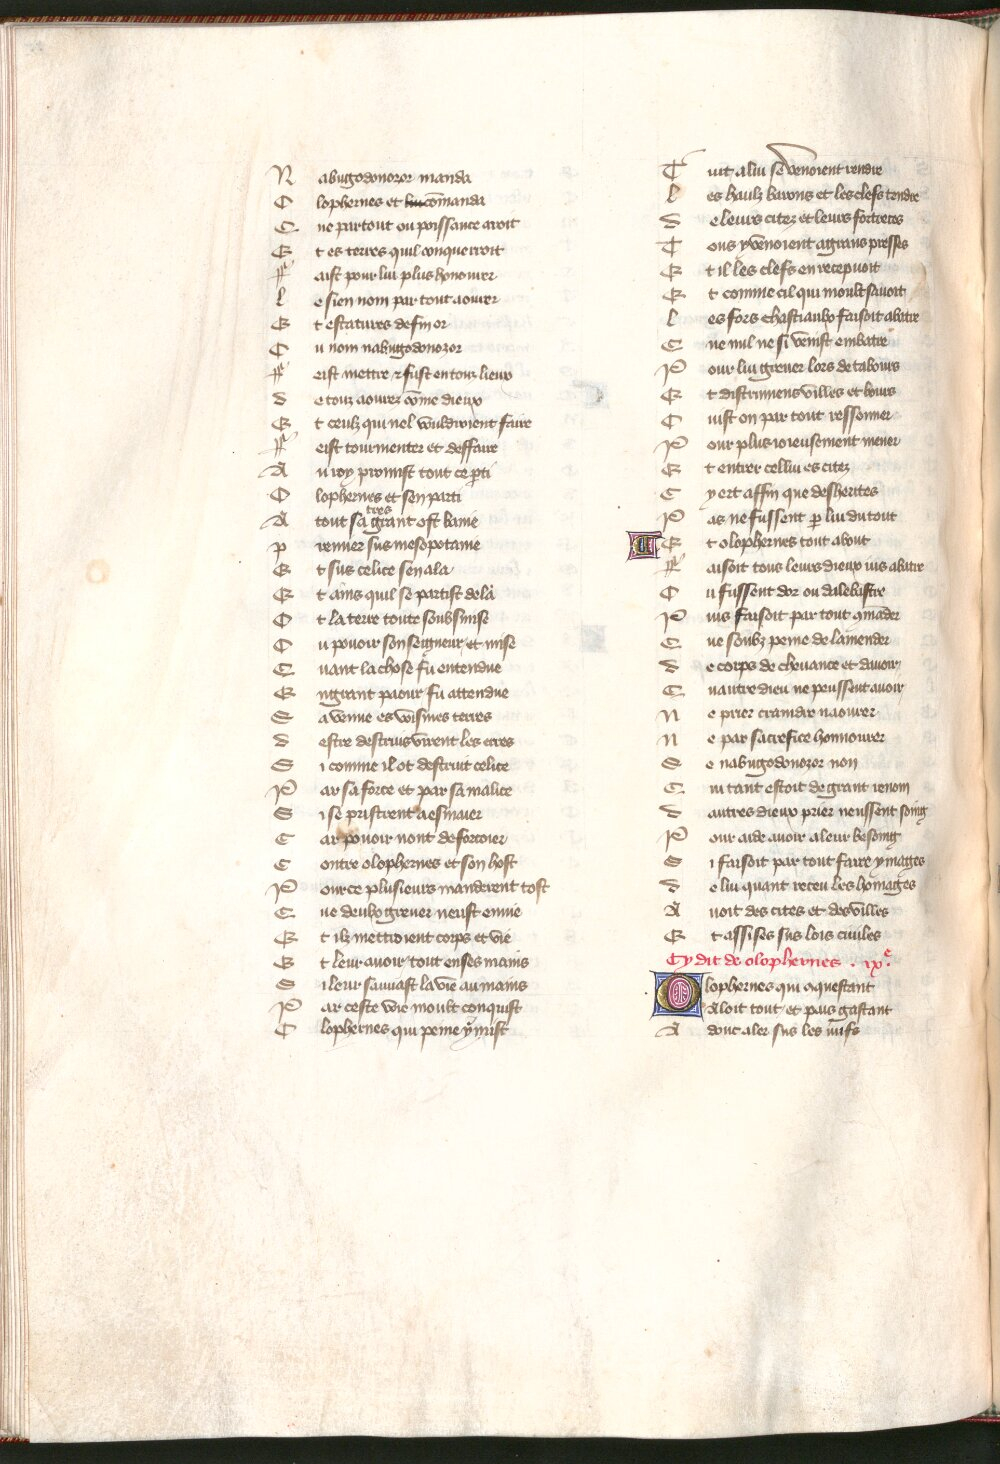 N abugodonozor manda
O lophernes et commanda
Q ue par tout ou poissance aroit
E t es terres quil conquerroit
F aist pour lui plus honnourer
L e sien nom par tout aourer
E t estatures de fin or
O u nom nabugodonozor
F eist mettre & fust en touz lieux
D e touz aourez come dieux
E t ceulz qui nel vouldroient faire
F eist tourmenter et deffaire
A u roy promist tout ce parti
O lophernes et sen parti
A tout sa tres grant ost banie
P remier sus mesopotame
E t sus celice sen ala
E t ains quil se partist de la
O t la terre toute soubsmise
O u pouoir son seigneur et mise
Q uant la chose fu entendue
E n grant paour fu attendue
S a venue es voisines terres
D estre destruis virent les erres
S i comme il ot destruit celice
P ar sa force et par sa malice
S i se pristrent a esmaier
C ar pouoir nont de forcoier
C ontre olophernes et son host
P our ce plusieurs manderent tost
Q ue deulx greuer neust enuie
E t ilz mettroient corps et vie
E t leur auoir tout en ses mains
S i leur sauuast la vie au mains
P ar ceste voie moult conquist
O lophernes qui peine y mist
T uit a lui se venoient rendre
L es haulz barons et les clefs tendre
D e leurs citez et leurs forteresces
T ous y venoient a grans presses
E t il les clefs en recepuoit
E t comme cil qui moult sauoit
L es fors chastiaulx faisoit abatre
Q ue nul ne si venist embatre
P our lui greuer lors de tabours
E t distrumens villes et bours
O uist on par tout ressonner
P our plus ioieusement mener
E t entrer cellui es citez
C y ert affin que desherites
P as ne fussent par lui du tout
E t olophernes tout about
F aisoit tous leurs dieux ius abatre
O u fussent dor ou dalebastre
P uis faisoit par tout commander
Q ue soubz peine de lamender
D e corps de cheuance et dauoir
Q uautre dieu ne peussent auoir
N e prier craindre naourer
N e par sacrefice honnourer
S e nabugodonozor non
Q ui tant estoit de grant renom
D autres dieux prier neussent soing
P our aide auoir a leur besoing
S i faisoit par tout faire ymages
D e lui quant receu les homages
A uoit des cites et des villes
E t assises sus lois ciuiles
Cy dit de olophernes . ixe.
Olophernes qui aquestant
Aloit tout et pais gastant
A donc aler sus les iuifs